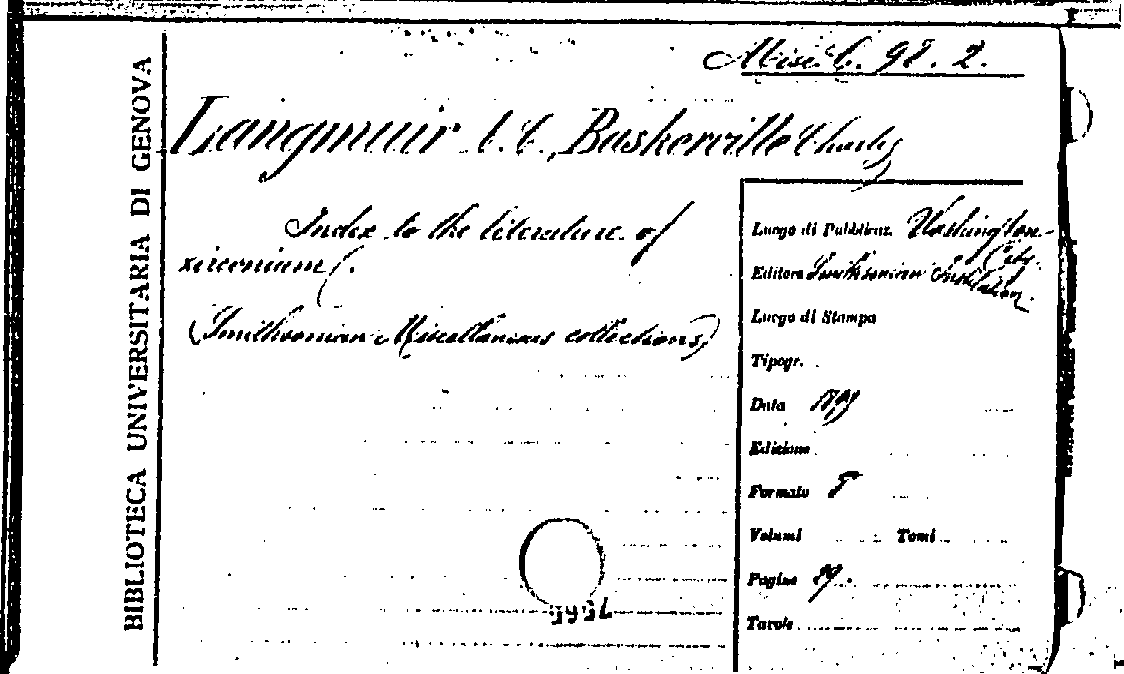 Misc. C. 98. 2.
BIBLIOTECA UNIVERSITARIA DI GENOVA
Langmuir A. C., Baskerville Charles
Index to the literature of
zirconium.
(Smithsonian Miscellanious collections)
Luogo di Pubblicaz. Washington
City
Editore Smithsonian Institution
Luogo di Stampa
Tipogr.
Data 1899
Edizione
Formato 8
Volumi Tomi
Pagine 29.
Tavole